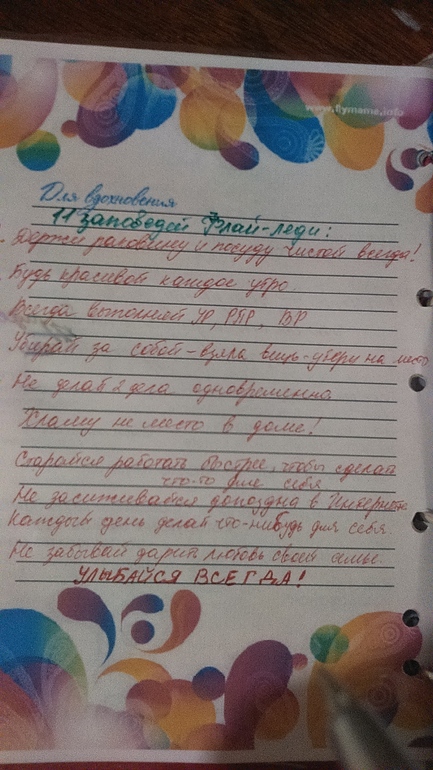 www.flymama.info
Для вдохновения
11 заповедей Флай-леди:
Держи раковину и посуду чистой всегда!
Будь красивой каждое утро
Всегда выполняй УР, РПР, ВР
Убирай за собой - взяла вещь - убери на место
Не делай 2 дела одновременно.
Хламу не место в доме!
Старайся работать быстрее, чтобы сделать
что-то для себя
Не засиживайся допоздна в Интернете
Каждый день делай что-нибудь для себя.
Не забывай дарить любовь своей семье.
УЛЫБАЙСЯ ВСЕГДА!